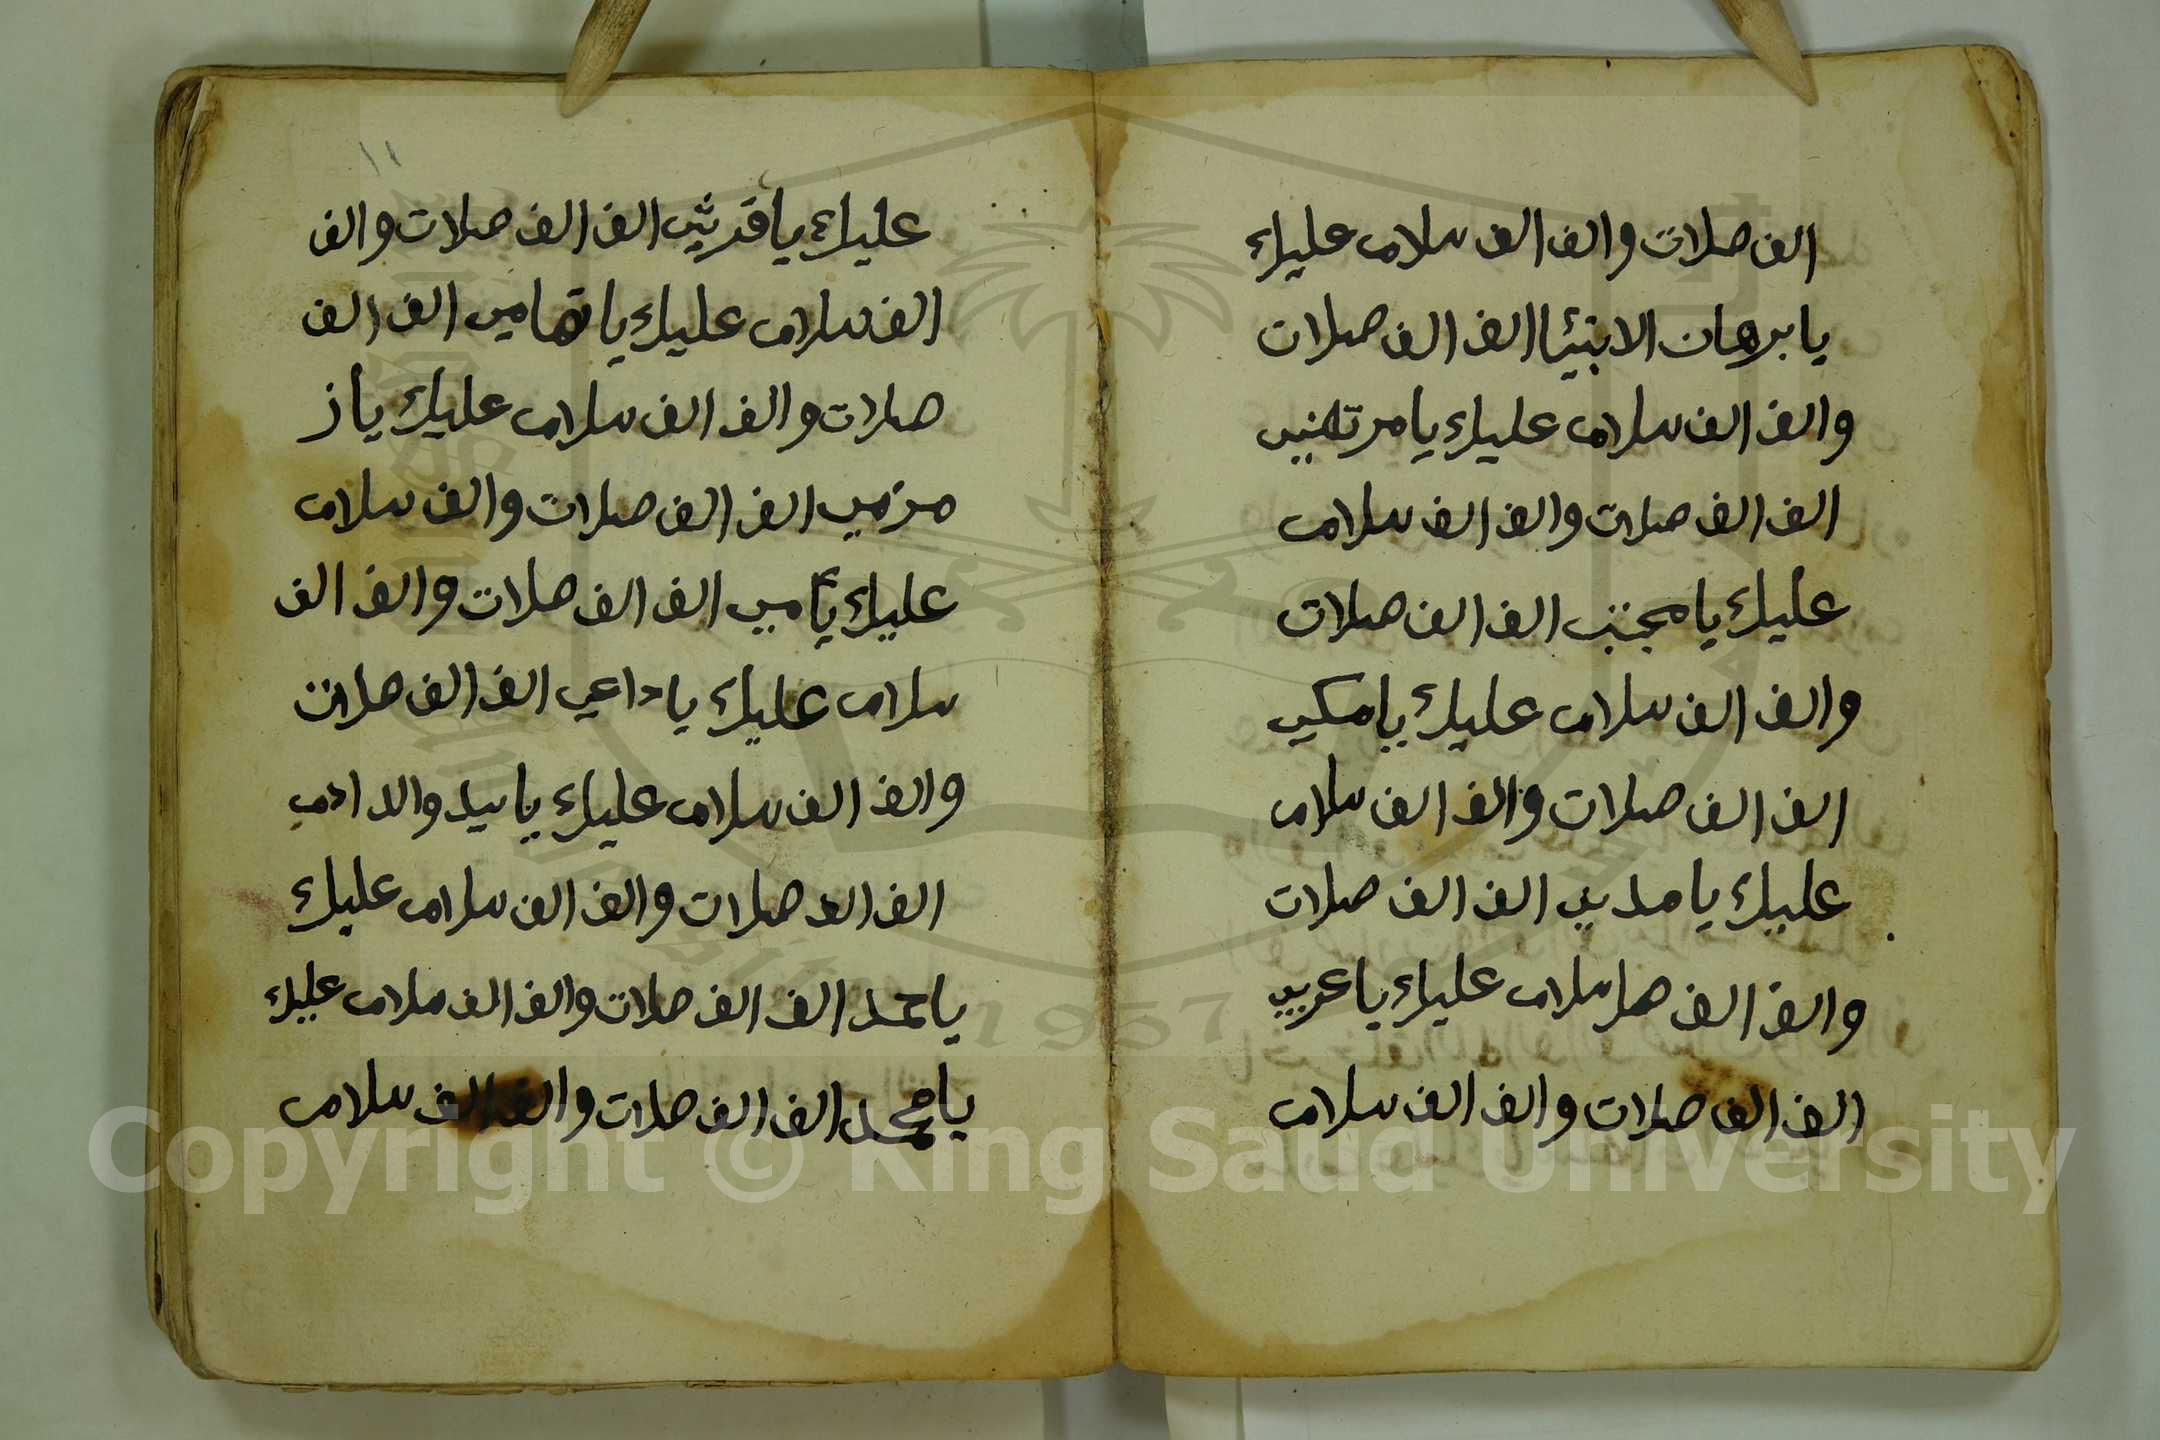 الف صلات والف الف سلام عليك
يا برهان الانبئيا الف الف صلات
والف الف سلام عليك يا مرتضي
الف الف صلات والف الف سلام
عليك يا مجتبى الف الف صلات
والف الف سلام عليك يا مكي
الف الف صلات والف الف سلام
عليك يا مدني الف الف صلات
والف الف سلام عليك يا عربي
الف الف صلات والف الف سلام
١١
عليك يا قريشي الف الف صلات والف
الف سلام عليك يا تهامي الف الف
صلات والف الف سلام عليك يا ز
مزمي الف الف صلات والف سلام
عليك يا امي الف الف صلات والف الف
سلام عليك يا داعي الف الف صلات
والف الف سلام عليك يا سيد والد ادم
الف الف صلات والف الف سلام عليك
يا حمد الف الف صلات والف الف سلام عليك
يا محمد الف الف صلات والف الف سلام
Copyright © King Saud University
1957